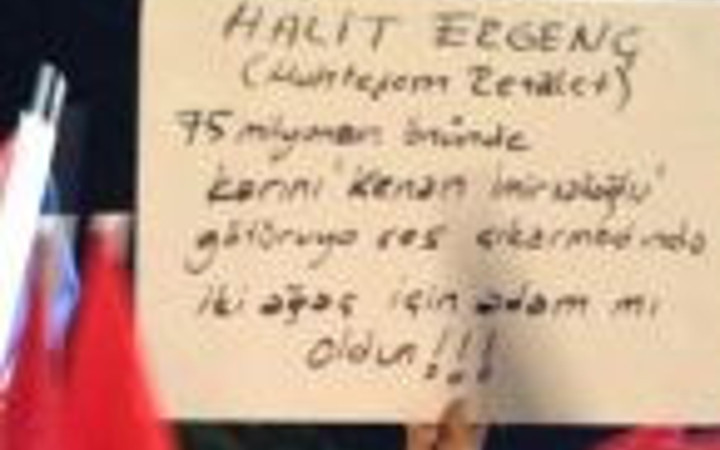 HALİT ERGENÇ
(Muhteşem Rezalet)
75 milyonun önünde
karını 'Kenan İmirzalıoğlu'
götürüyo ses çıkarmadında
iki ağaç için adam mı
oldun!!!